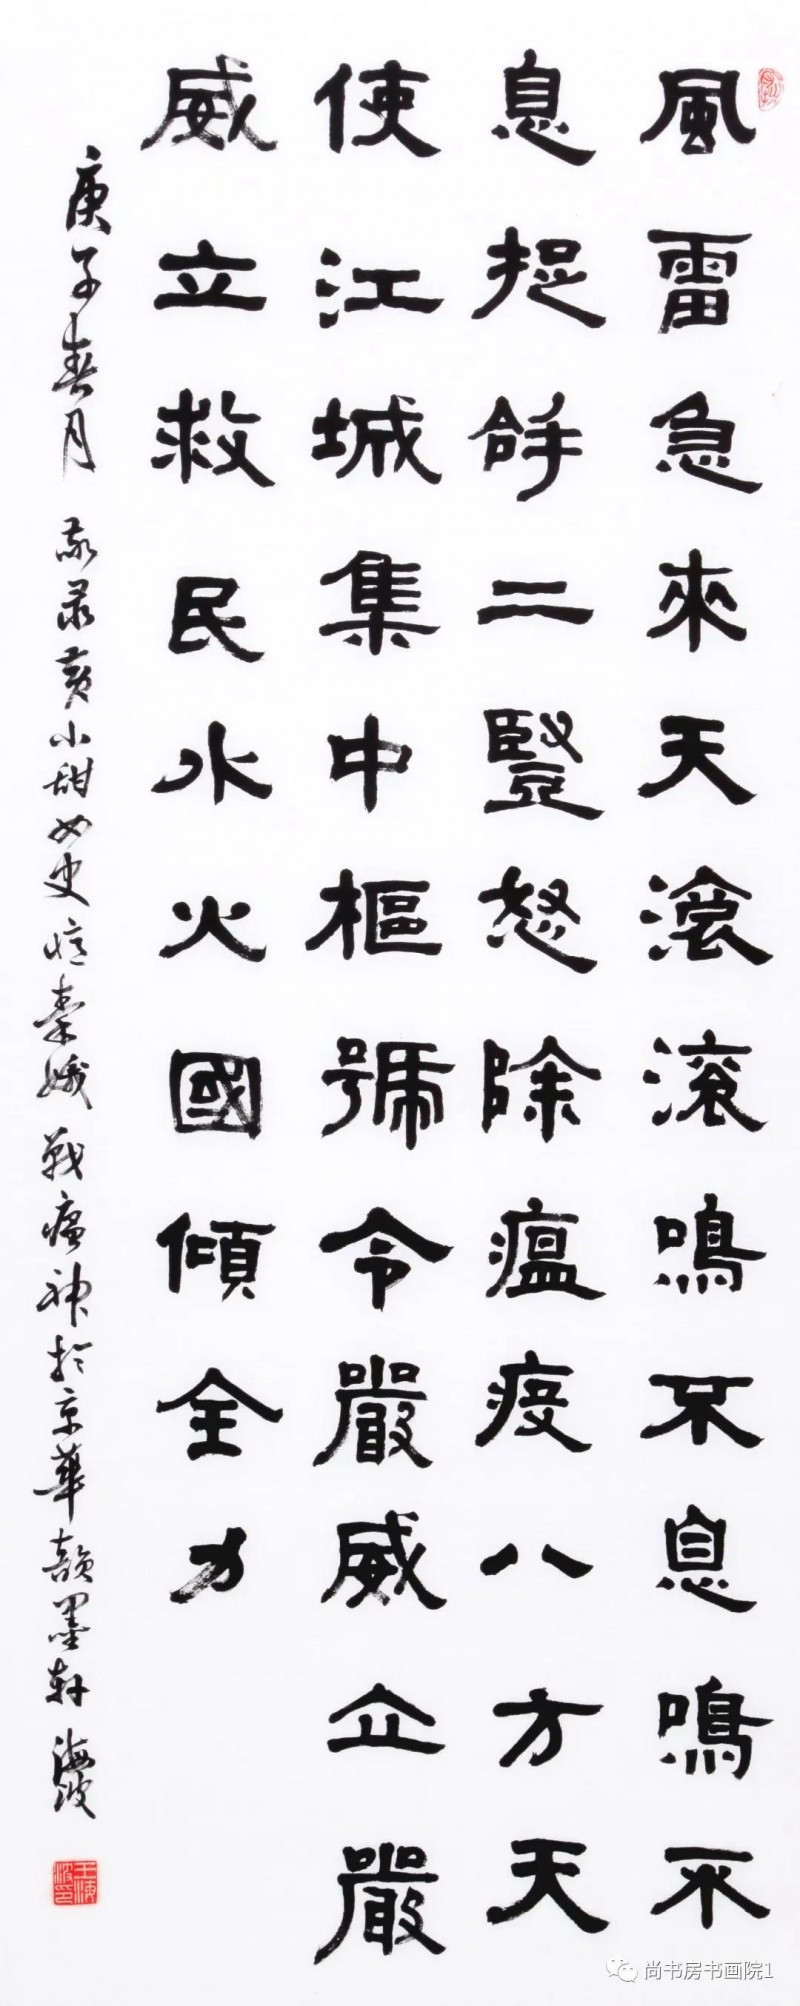 風雷急來天滾滾鳴不息鳴不
息捉拿二豎怒除瘟疫八方天
使江城集中樞號令嚴威立嚴
威立救民水火國傾全力
庚子春月 敬录黄小甜女史憶秦娥戰瘟神於京華韻墨軒 海波
王海波印
尚书房书画院1